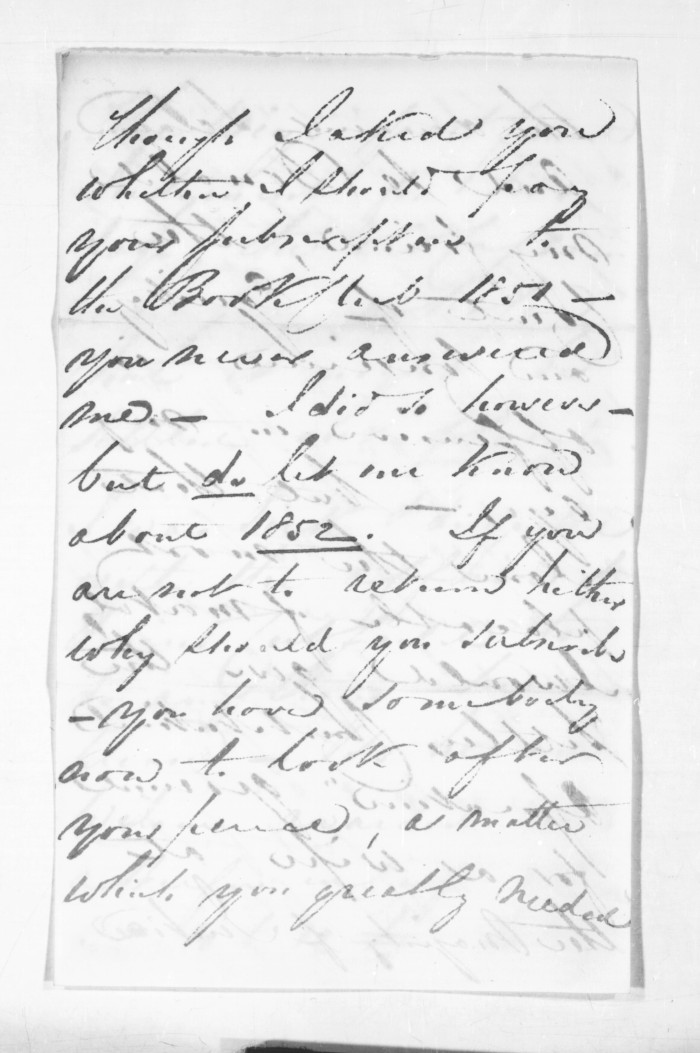 though I asked you
whether I should pay
your subscription to
the Book Club 1851 –
you never answered
me. – I did so however –
but do let me know
about 1852. If you
are not to return hither
why should you subscribe
– you have somebody
now to look after
your pence, a matter
which you greatly needed